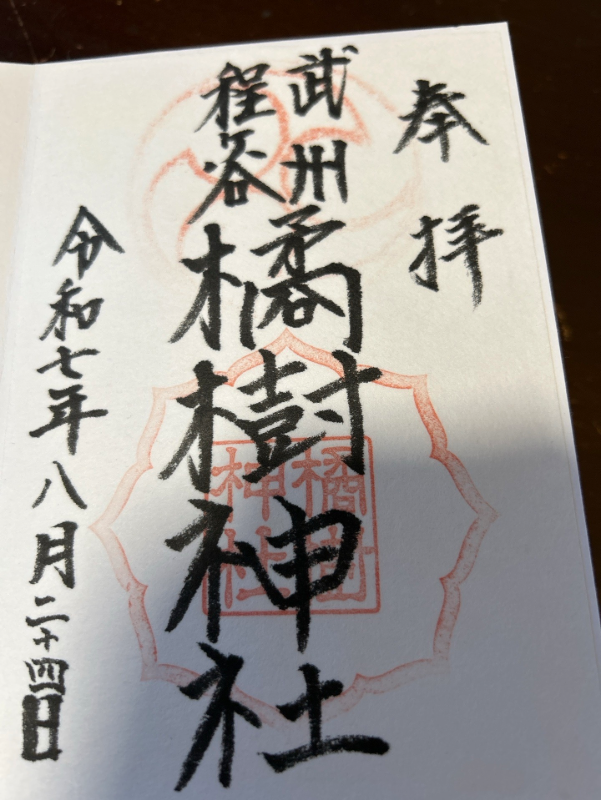 奉拝
武州
程ヶ谷
橘樹神社
橘樹
神社
令和七年八月二十四日